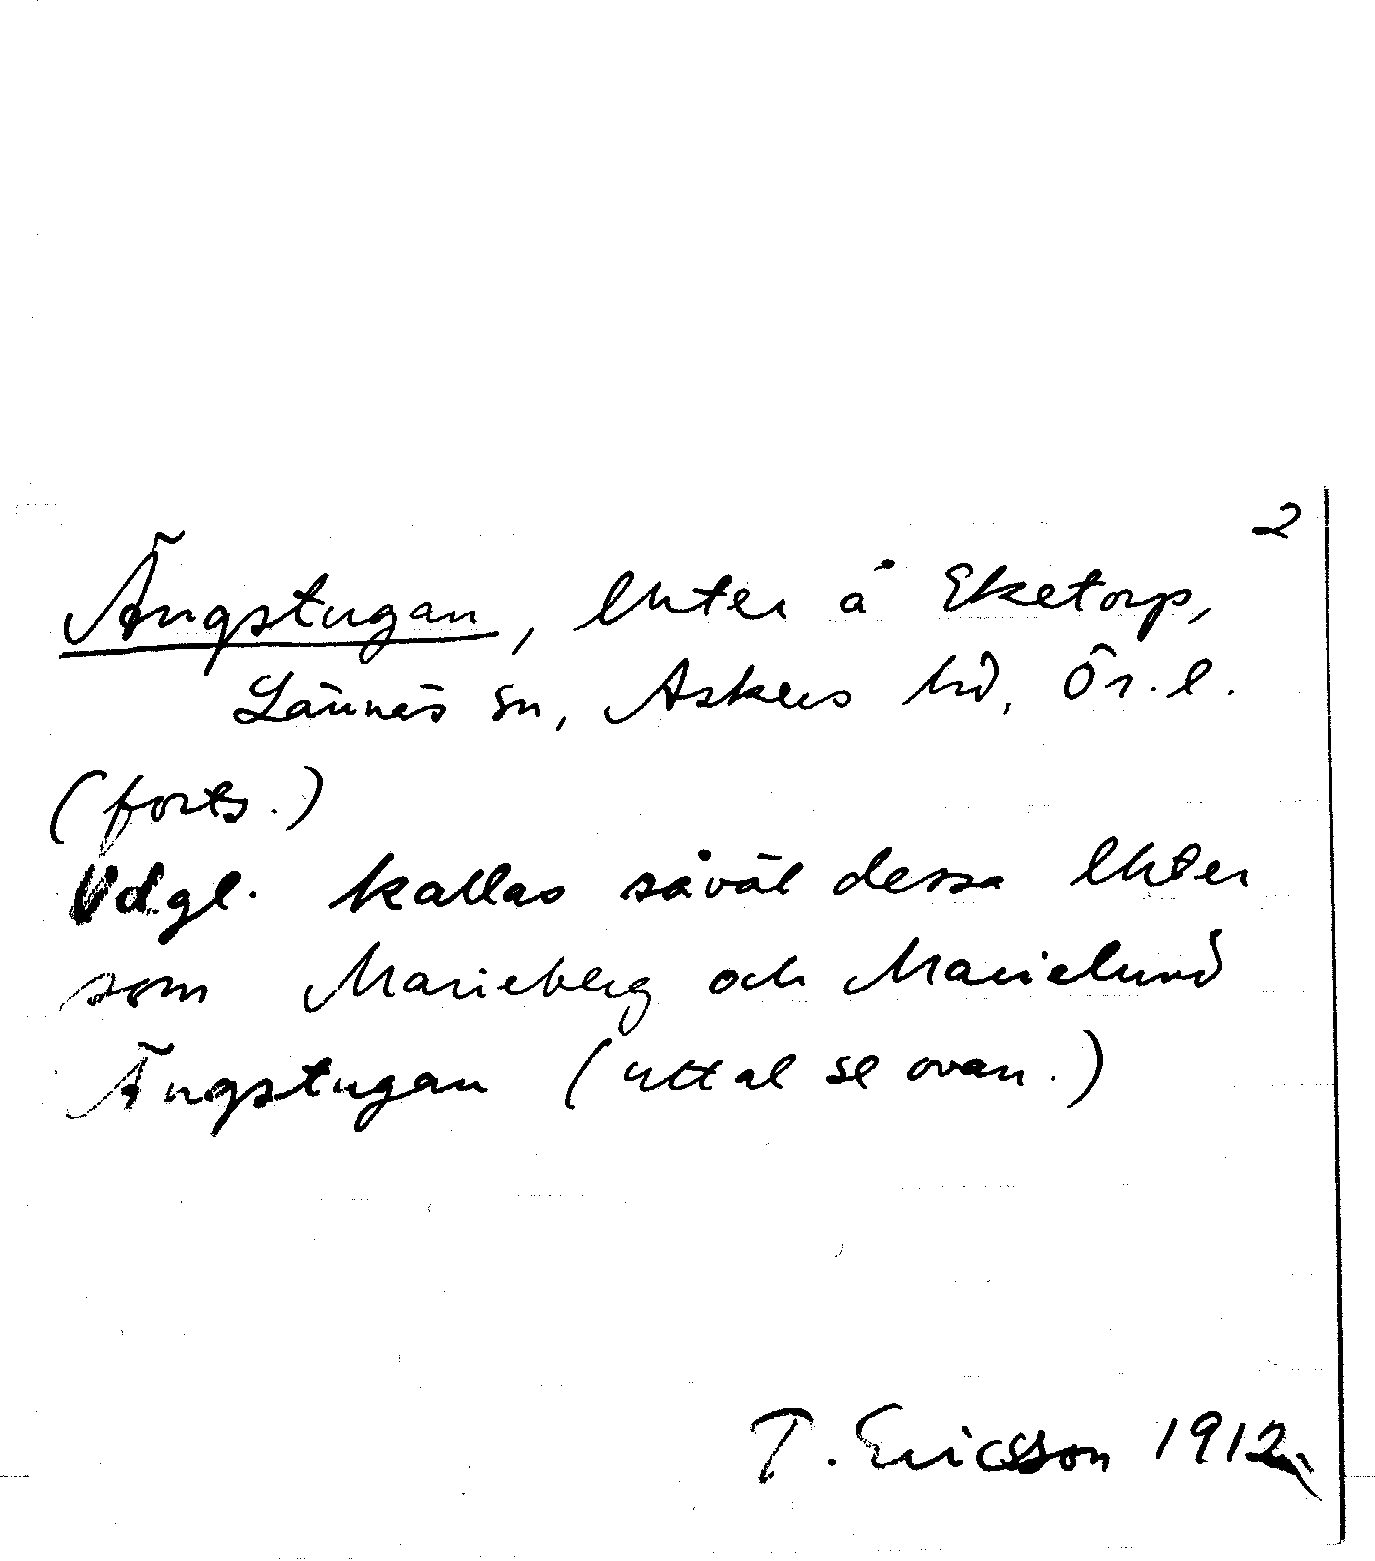 2
Ängstugan, lhter å Eketorp,
Lännäs sn, Askers hd, Ör. l.
(forts.)
Vdgl. kallas såväl dessa lhter
som Marieberg och Marielund
Ängstugan (uttal se ovan.)
T. Ericsson 1912